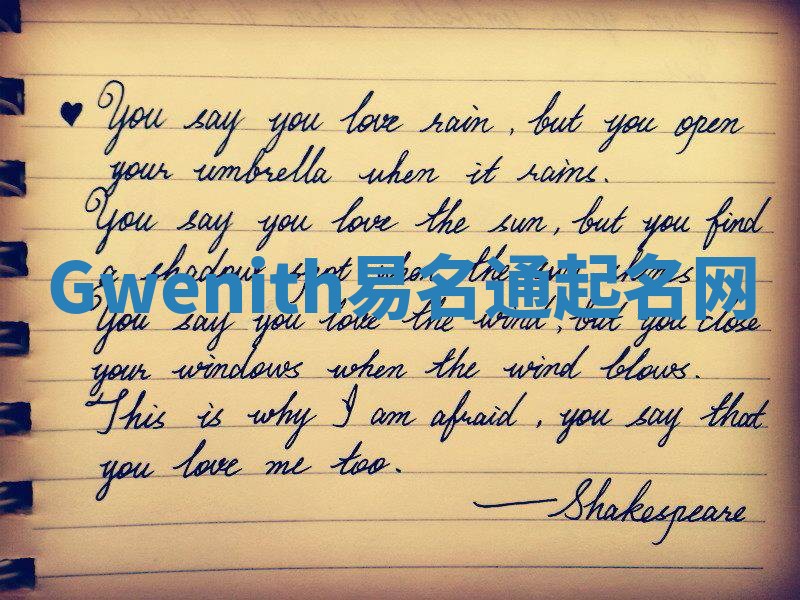 ♥ You say you love rain, but you open
your umbrella when it rains.
You say you love the sun, but you find
a shadow spot when the sun shines
Gwenith易名通起名网
You say you love the wind, but you close
your windows when the wind blows.
This is why I am afraid, you say that
you love me too.
—Shakespeare